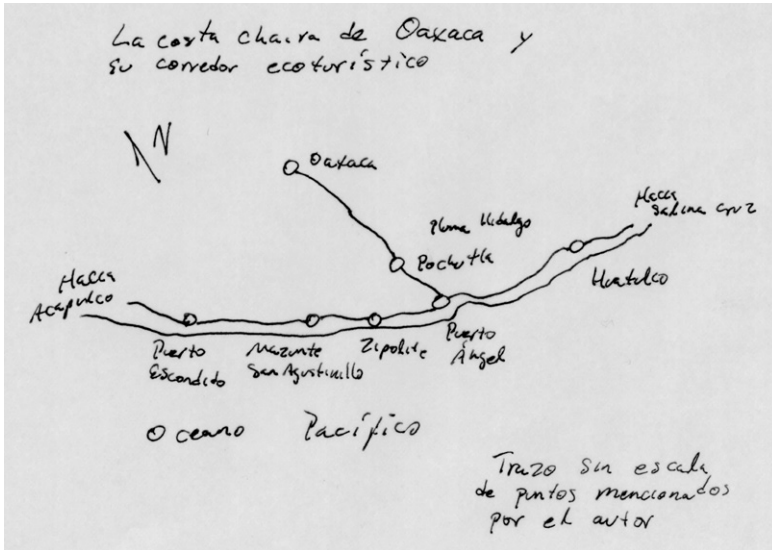 La costa chaira de Oaxaca y
su corredor ecoturístico
N
Oaxaca
Pluma Hidalgo
Pochutla
Hacia
Salina Cruz
Huatulco
Hacia
Acapulco
Puerto
Escondido
Mazunte
San Agustinillo
Zipolite
Puerto
Ángel
Oceano Pacífico
Trazo sin escala
de puntos mencionados
por el autor